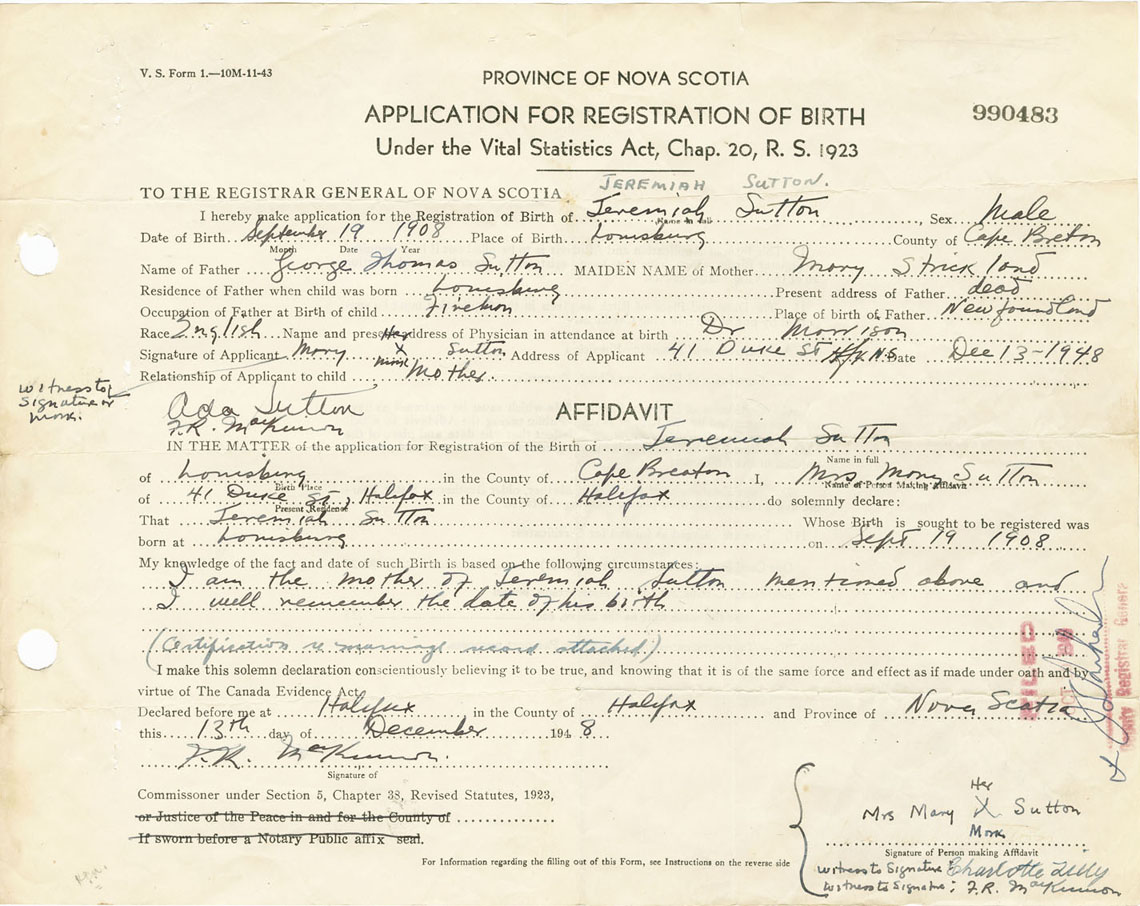 V. S. Form 1.—10M-11-43
PROVINCE OF NOVA SCOTIA
APPLICATION FOR REGISTRATION OF BIRTH
990483
Under the Vital Statistics Act, Chap. 20, R. S. 1923
JEREMIAH SUTTON.
TO THE REGISTRAR GENERAL OF NOVA SCOTIA
I hereby make application for the Registration of Birth of Jeremiah Sutton, Sex Male
Name in full
Date of Birth September 19 1908 Place of Birth Louisburg County of Cape Breton
Month Date Year
Name of Father George Thomas Sutton MAIDEN NAME of Mother Mary Strickland
Residence of Father when child was born Louisburg Present address of Father dead
Occupation of Father at Birth of child Fireman Place of birth of Father Newfoundland
Race English Name and present address of Physician in attendance at birth Dr Morrison
Her
Signature of Applicant Mary X Sutton Address of Applicant 41 Duke St Hfx N.S Date Dec 13-1948
mark
Relationship of Applicant to child Mother.
witness to
signature or
mark.
Ada Sutton
F.R. MacKinnon
AFFIDAVIT
IN THE MATTER of the application for Registration of the Birth of Jeremiah Sutton
Name in full
of Louisburg in the County of Cape Breaton I, Mrs Mary Sutton
Birth Place Name of Person Making Affidavit
of 41 Duke St, Halifax in the County of Halifax do solemnly declare:
Present Residence
That Jeremiah Sutton Whose Birth is sought to be registered was
born at Louisburg on Sept 19 1908
My knowledge of the fact and date of such Birth is based on the following circumstances:
I am the mother of Jeremiah Sutton mentioned above and
I well remember the date of his birth
(Certification re marriage record attached.)
I make this solemn declaration conscientiously believing it to be true, and knowing that it is of the same force and effect as if made under oath and by
virtue of The Canada Evidence Act
Declared before me at Halifax in the County of Halifax and Province of Nova Scotia
this 13th day of December 1948
F.R. MacKinnon.
Signature of
Commissoner under Section 5, Chapter 38, Revised Statutes, 1923,
or Justice of the Peace in and for the County of
If sworn before a Notary Public affix seal.
For Information regarding the filling out of this Form, see Instructions on the reverse side
Her
Mrs Mary X Sutton
Mark
Signature of Person making Affidavit
witness to Signature Charlotte Tully
witness to Signature: F.R. MacKinnon
FILED
Deputy Registrar General